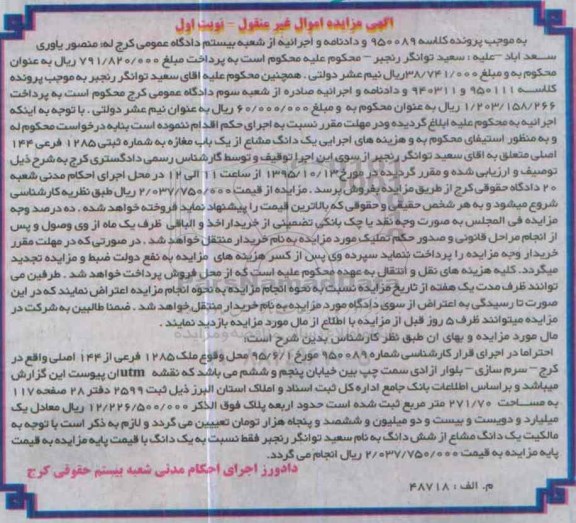 آگهی مزایده اموال غیر منقول - نوبت اول
به موجب پرونده کلاسه ۹۵۰۰۸۹ و دادنامه و اجرائیه از شعبه بیستم دادگاه عمومی کرج له: منصور یآوری
سعد اباد -علیه : سعید توانگر رنجبر - محکوم علیه محکوم است به پرداخت مبلغ ۷۹۱/۸۲۰/۰۰۰ ریال به عنوان
محکوم به و مبلغ ۳۸/۷۴۱/۰۰۰ریال نیم عشر دولتی . همچنین محکوم علیه اقای سعید توانگر رنجبر به موجب پرونده
کلاسه ۹۵۰۱۱۱ و ۹۴۰۳۱۱ و دادنامه و اجرائیه صادره از شعبه سوم دادگاه عمومی کرج محکوم است به پرداخت
۱/۲۰۳/۱۵۸/۲۶۶ ریال به عنوان محکوم به و مبلغ ۶۰/۰۰۰/۰۰۰ ریال به عنوان نیم عشر دولتی . با توجه به اینکه
اجرائیه به محکوم علیه ابلاغ گردیده ودر مهلت مقرر نسبت به اجرای حکم اقدام ننموده است بنابه درخواست محکوم له
و به منظور استیفای محکوم به و هزینه های اجرایی یک دانگ مشاع از یک باب مغازه به شماره ثبتی ۱۲۸۵ فرعی ۱۴۴
اصلی متعلق به اقای سعید توانگر رنجبر از سوی این اجرا توقیف و توسط کارشناس رسمی دادگستری کرج به شرح ذیل
توصیف و ارزیابی شده و مقرر گردیده در مورخ ۱۳۹۵/۱۰/۱۳ از ساعت ۱۱ الی ۱۲ در محل اجرای احکام مدنی شعبه
۲۰ دادگاه حقوقی کرج از طریق مزایده بفروش برسد . مزایده از قیمت ۲/۰۳۷/۷۵۰/۰۰۰ ریال طبق نظریه کارشناسی
شروع میشود و به هر شخص حقیقی و حقوقی که بالاترین قیمت را پیشنهاد نماید فروخته خواهد شد . ده درصد وجه
مزایده فی المجلس به صورت وجه نقد یا چک بانکی تضمینی از خریدار اخذ و الباقی ظرف یک ماه از وی وصول و پس
از انجام مراحل قانونی و صدور حکم تملیک مورد مزایده به نام خریدار منتقل خواهد شد . در صورتی که در مهلت مقرر
خریدار وجه مزایده را پرداخت ننماید سپرده وی پس از کسر هزینه های مزایده به نفع دولت ضبط و مزایده تجدید
میگردد. کلیه هزینه های نقل و انتقال به عهده محکوم علیه است که از محل فروش پرداخت خواهد شد . طرفین می
توانند ظرف مدت یک هفته از تاریخ مزایده نسبت به نحوه انجام مزایده به نحوه انجام مزایده اعتراض نمایند که در این
صورت تا رسیدگی به اعتراض از سوی دادگاه مورد مزایده به نام خریدار منتقل خواهد شد . ضمنا طالبین به شرکت در
مزایده میتوانند ظرف ۵ روز قبل از مزایده با اطلاع از مال مورد مزایده بازدید نمایند .
مال مورد مزایده و بهای ان طبق نظر کارشناس بدین شرح است:
احتراما در اجرای قرار کارشناسی شماره ۹۵۰۰۸۹ مورخ ۹۵/۶/۱ محل وقوع ملک ۱۲۸۵ فرعی از ۱۴۴ اصلی واقع در
کرج - سرم سازی - بلوار ازادی سمت چپ بین خیابان پنجم و ششم می باشد که نقشه utm ان پیوست این گزارش
میباشد و بر اساس اطلاعات بانک جامع اداره کل ثبت اسناد و املاک استان البرز ذیل ثبت ۲۵۹۹ دفتر ۲۸ صفحه ۱۱۷
به مساحت ۲۷۱/۷۰ متر مربع ثبت شده است حدود اربعه پلاک فوق الذکر ۱۲/۲۲۶/۵۰۰/۰۰۰ ریال معادل یک
میلیارد و دویست و بیست و دو میلیون و ششصد و پنجاه هزار تومان تعیین می گردد و لازم به ذکر است با توجه به
مالکیت یک دانگ مشاع از شش دانگ به نام سعید توانگر رنجبر فقط نسبت به یک دانگ با قیمت پایه مزایده به قیمت
پایه مزایده به قیمت ۲/۰۳۷/۷۵۰/۰۰۰ ریال انجام می گردد.
دادورز اجرای احکام مدنی شعبه بیستم حقوقی کرج
م. الف : ۴۸۷۱۸